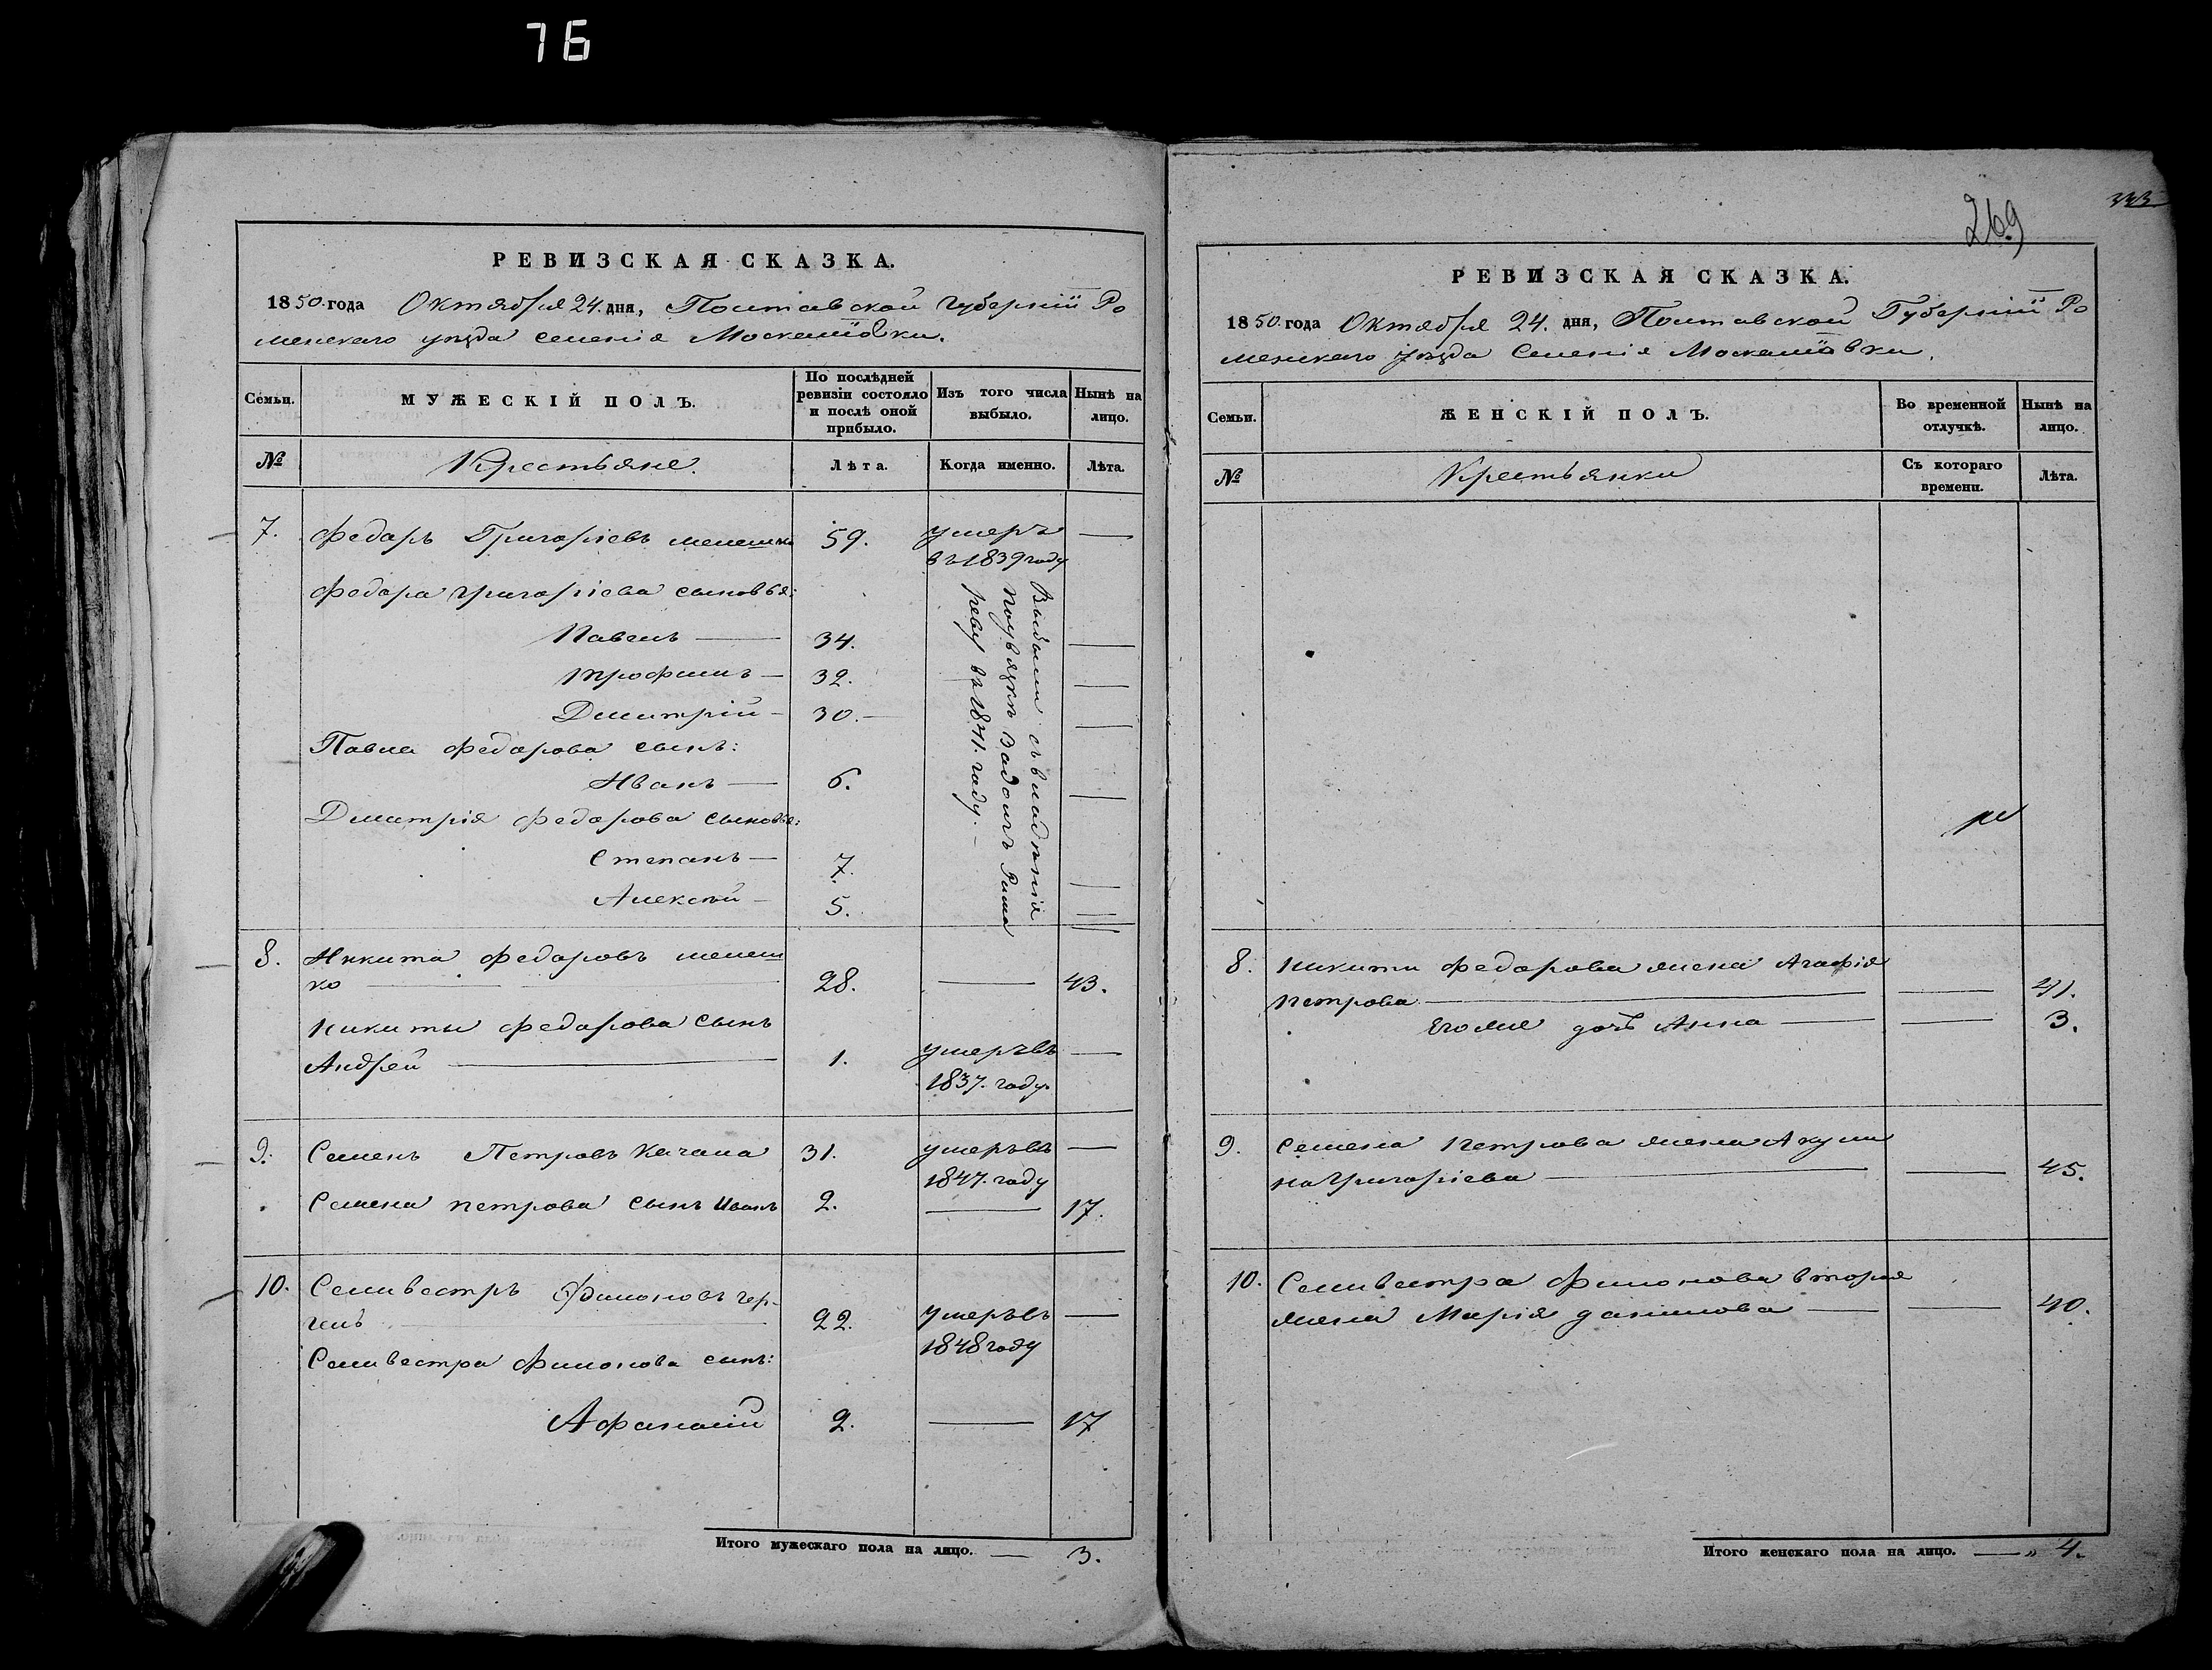 76
РЕВИЗСКАЯ СКАЗКА.
1850. года Октября 24. дня, Полтавской Губерніи Ро
менскаго уѣзда селенія Москалiовки.
Семьи.
МУЖЕСКІЙ ПОЛЪ.
По послѣдней ревизіи состояло и послѣ оной прибыло.
Изъ того числа выбыло.
Нынѣ на лицо.
№ Крестьяне. Лѣта. Когда именно. Лѣта.
7. Федоръ Григоріевъ мелешко 59. умеръ —
въ 1839 году
Федора григоріева сыновья:
Павелъ — 34. —
трофимъ — 32. —
Дмитрій — 30. — —
Павла федорова сынъ:
Иванъ — 6. —
Дмитрія федорова сыновья:
Степанъ — 7. —
Алексѣй — 5. —
Выбыли съ владѣнія
реву въ 1841. году. —
8. Никита федоровъ мелеш
ко — 28. — 43.
никиты федорова сынъ
Андрей — 1. умеръ въ —
1837. году.
9. Семенъ Петровъ Качала 31. умеръ въ —
1847. году
Семена петрова сынъ Иванъ 2. — 17.
10. Селивестръ Филоновъ чер-
22. умеръ въ —
1848 году
Селивестра филонова сынъ:
Афанасій 2. — 17
Итого мужескаго пола на лицо. — 3.
269
333
РЕВИЗСКАЯ СКАЗКА.
1850. года Октября 24. дня, Полтавской Губерніи Ро
менскаго уѣзда Селенія Москалiовки.
Семьи.
ЖЕНСКІЙ ПОЛЪ.
Во временной отлучкѣ.
Нынѣ на лицо.
№ Крестьянки Съ котораго времени. Лѣта.
8. никиты федорова жена Агафія
петрова — — 41.
Его же дочь Анна — — 3.
9. Семена петрова жена Акули
на григоріева — — 45.
10. Селивестра филонова вторая
жена Марія данилова — — 40.
Итого женскаго пола на лицо. — „ 4.